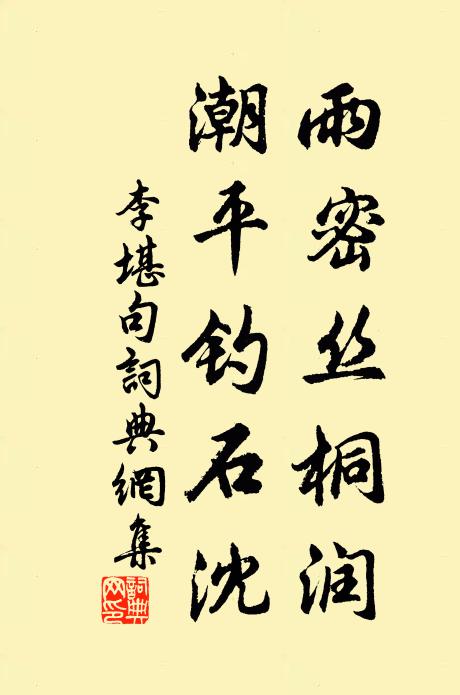 雨密丝桐润
潮平钓石沈
李堪句詞典網集
詞典
网印